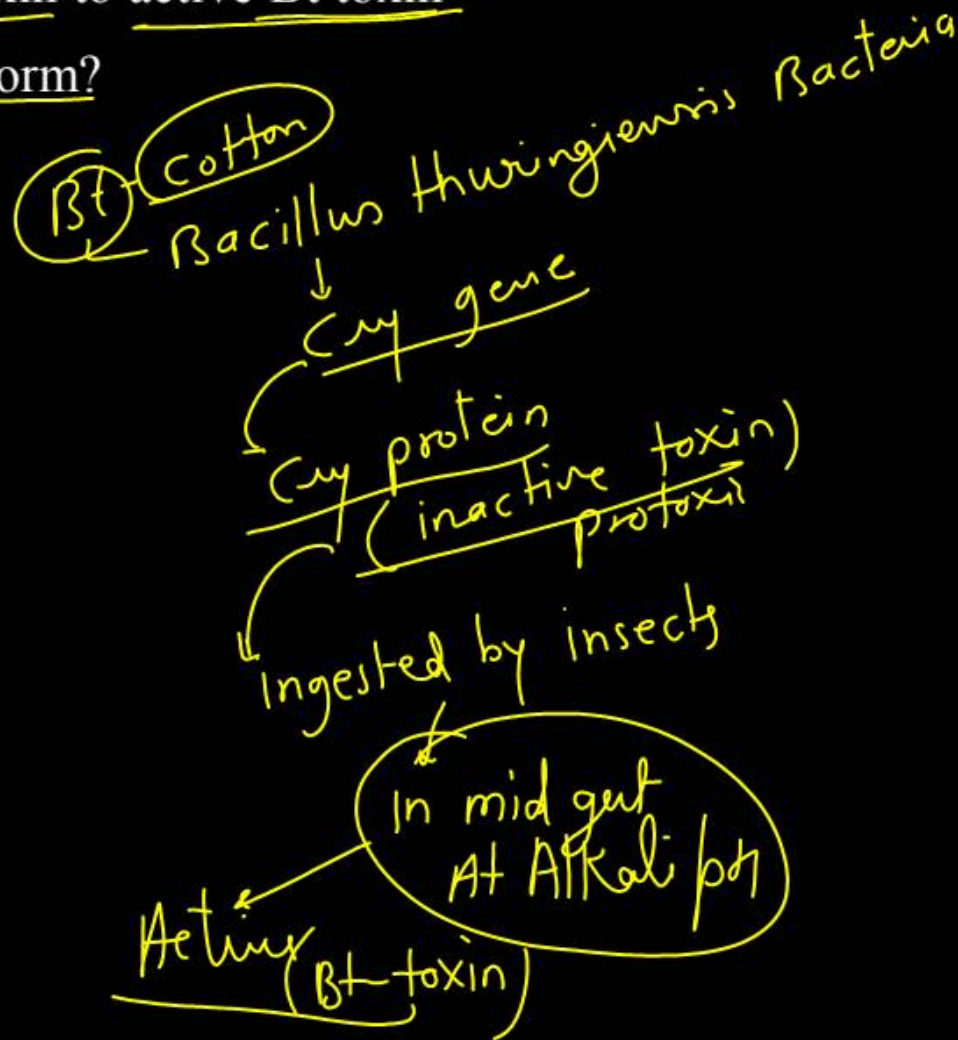 to active Bt toxin
orm?
Bt cotton
Bacillus thuringiensis Bacteria
Cry gene
Cry protein
(inactive toxin)
protoxi
ingested by insects
In mid gut
At Alkali pH
Active
(Bt-toxin)